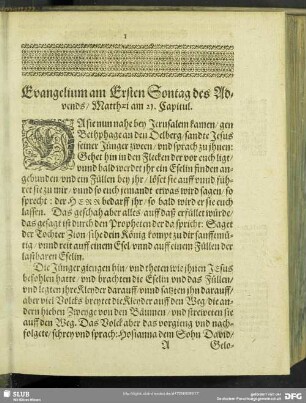 1
Evangelium am Ersten Sontag des Ad-
vends/ Matthæi am 21. Capitul.
DA sie nun nahe bey Jerusalem kamen/ gen
Bethphage an den Oelberg/ sandte Jesus
seiner Jünger zween/ vnd sprach zu jhnen:
Gehet hin in den Flecken der vor euch ligt/
vnnd bald werdet jhr ein Eselin finden an-
gebunden vnd ein Füllen bey jhr/ löset sie auff vnnd füh-
ret sie zu mir/ vnnd so euch jemandt etwas wird sagen/ so
sprecht: der HERR bedarff jhr/ so bald wird er sie euch
lassen. Das geschah aber alles auff daß erfüllet würde/
das gesagt ist durch den Propheten der da spricht: Saget
der Tochter Zion/ sihe dein König kompt zu dir sanfftmü-
tig/ vnnd reit auff einem Esel vnnd auff einem Füllen der
lastbaren Eselin.
Die Jünger giengen hin/ vnd theten wie jhnen JEsus
befohlen hatte/ vnd brachten die Eselin vnd das Füllen/
vnd legten jhre Kleyder darauff/ vnnd satzten jhn darauff/
aber viel Volcks breytet die Kleyder auff den Weg/ die an-
dern hieben Zweige von den Bäumen/ vnd streweten sie
auff den Weg. Das Volck aber das vorgieng vnd nach-
folgete/ schrey vnd sprach: Hosianna dem Sohn David/
A Gelo-
SLUB